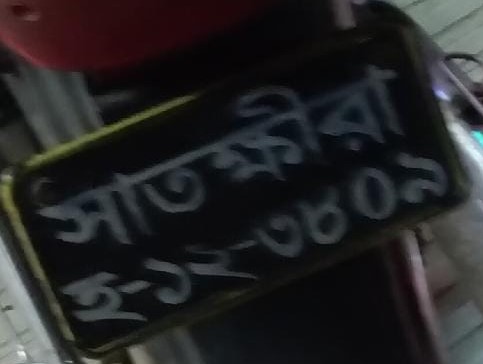 সাতক্ষীরা
হ-১২-৩৪০৯